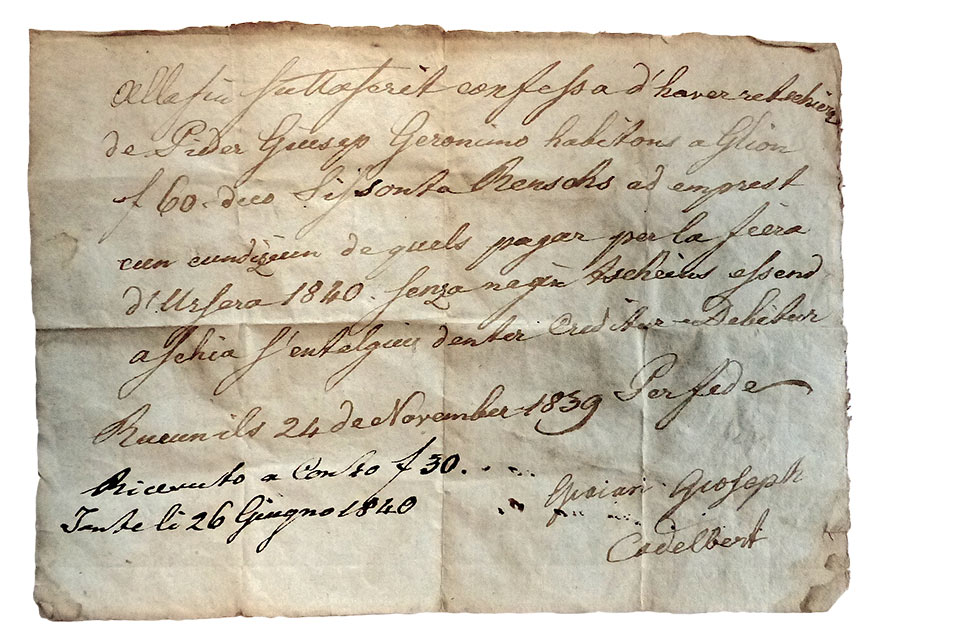 Ella fin suttascrit confessa d'haver retschiert
de Pider Giusep Geronimo habitons a Glion
f 60. dico Sissonta Renschs ad emprest
cun cundiziun de quels pagar per la fiera
d'Ursera 1840. senza negin tscheins essend
aschia s'entalgieu denter Creditur e Debitur
Rueun ils 24 de November 1839 Per fede
Ricevuto a Conto f 30.
li 26 Giugno 1840
Gioseph
Cadelbert